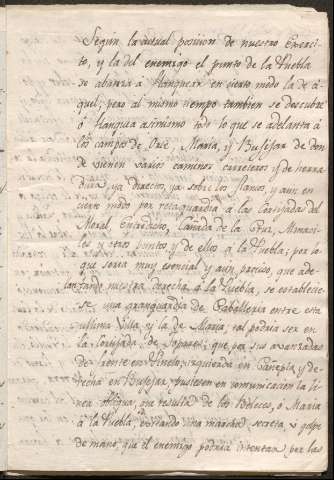 Segun la actual posicion de nuestro Exerci-
to, y la del enemigo el punto de la Puebla
se abanza á flanquear en cierto modo la de a-
quel; pero al mismo tiempo tambien se descubre
ó flanquea asimismo todo lo que se adelanta á
los campos de Orce, Maria, y Bugejar de don-
de vienen varios caminos carreteros y de herra
dura, ya directos, ya sobre los flancos, y aun en
cierto modo por retaguardia a las Cortijadas del
Moral, Cañada de la Cruz,
les y otros puntos y de ellos a la Puebla; por lo
que seria muy esencial y aun preciso, que ade-
lantando nuestra derecha á la Puebla, se establecie-
se una granguardia de Caballeria entre esta
ultima Villa y la de Maria, tal podria ser en
la Cortijada de que por sus avanzadas
de frente en izquierda en y de-
recha en Bugejar, pusiesen en comunicacion la li-
nea que resulta de los Veleces, ó Maria
á la Puebla, evitando una marcha secreta, ó golpe
de mano, que el enemigo podria intentar por las